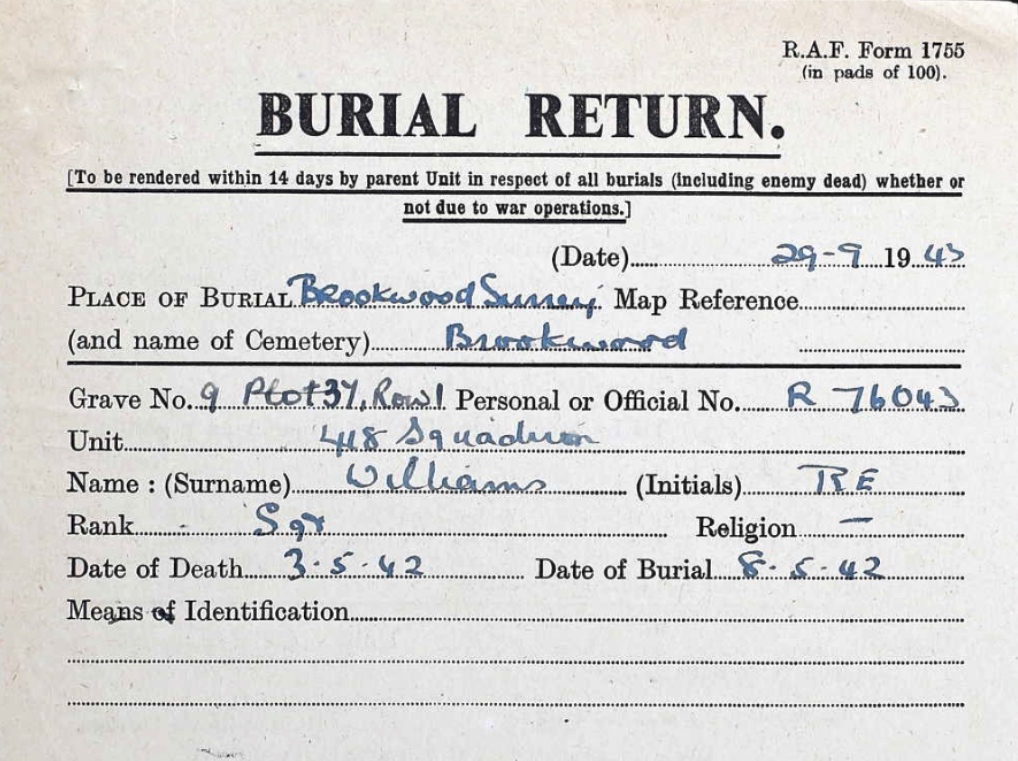 R.A.F. Form 1755
(in pads of 100).
BURIAL RETURN.
[To be rendered within 14 days by parent Unit in respect of all burials (including enemy dead) whether or
not due to war operations.]
(Date) 29-9 1943
PLACE OF BURIAL Brookwood Surrey. Map Reference
(and name of Cemetery) Brookwood
Grave No. 9 Plot 37, Row 1 Personal or Official No. R 76043
Unit 418 Squadron
Name : (Surname) Williams (Initials) RE
Rank - Sgt Religion —
Date of Death 3.5.42 Date of Burial 8.5.42
Means of Identification